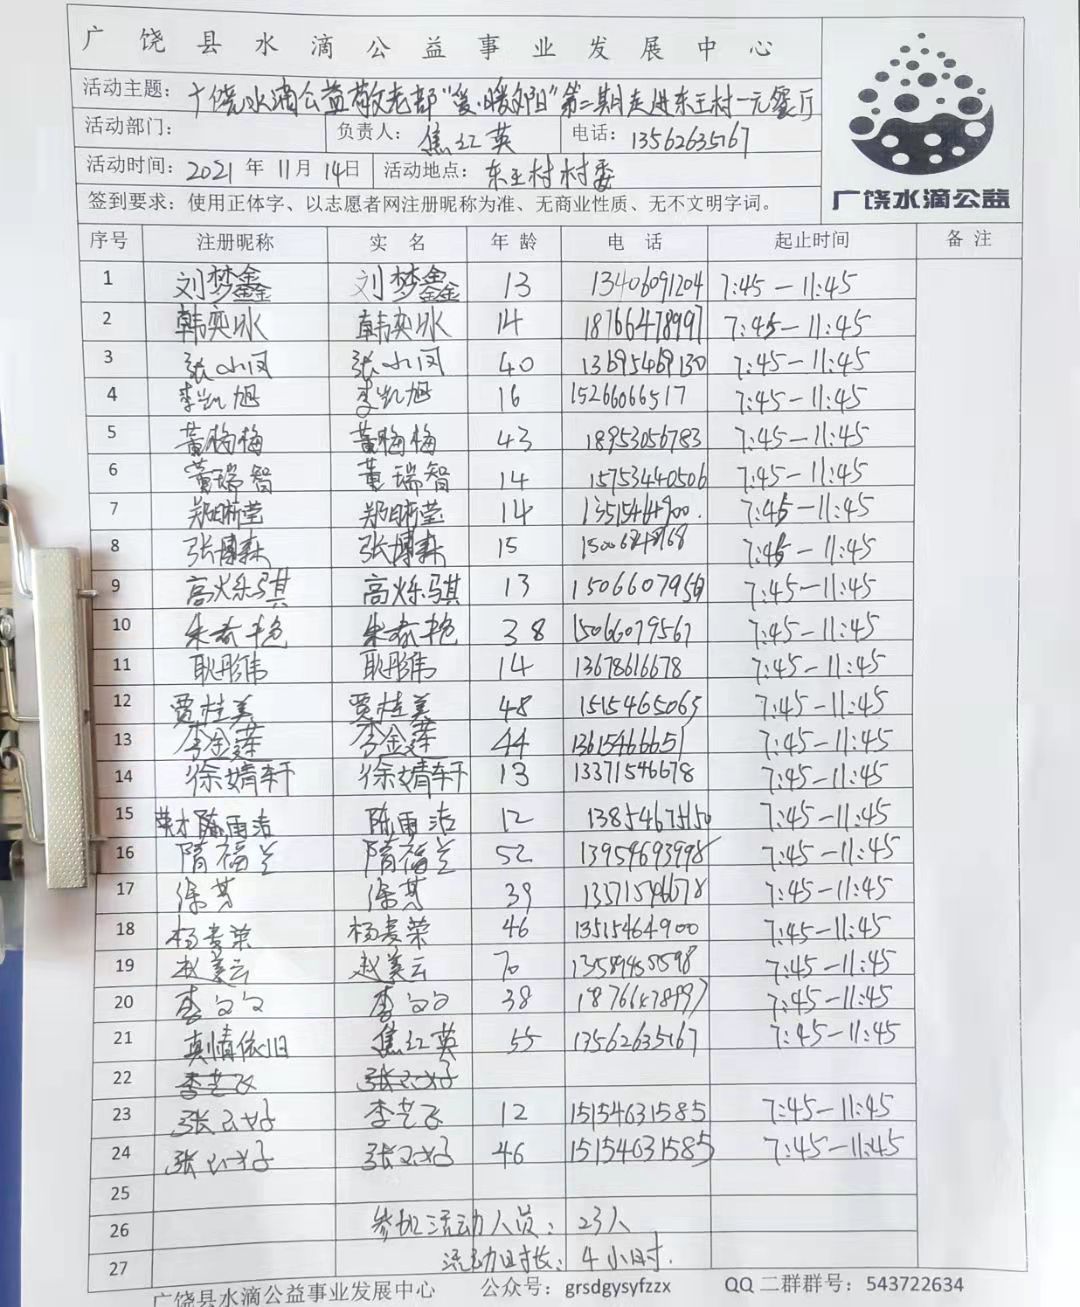 广饶县水滴公益事业发展中心
活动主题：广饶水滴公益敬老部"爱·暖夕阳"第二期走进东王村一元餐厅
活动部门： 负责人：焦红英 电话：13562635167
活动时间：2021年11月14日 活动地点：东王村村委
签到要求：使用正体字、以志愿者网注册昵称为准、无商业性质、无不文明字词。
广饶水滴公益
序号 注册昵称 实 名 年 龄 电 话 起止时间 备 注
1 刘梦鑫 刘梦鑫 13 13406091204 7:45—11:45
2 韩奕冰 韩奕冰 14 18766478997 7:45—11:45
3 张小闪 张小闪 40 13695469130 7:45—11:45
4 李凯旭 李凯旭 16 15266066517 7:45—11:45
5 黄梅梅 黄梅梅 43 18953056783 7:45—11:45
6 黄瑞智 黄瑞智 14 15753440506 7:45—11:45
7 郑晰莹 郑晰莹 14 13515464900. 7:45—11:45
8 张博森 张博森 15 7:45—11:45
9 高烁骐 高烁骐 13 7:45—11:45
10 朱 艳 朱 艳 38 15066079567 7:45—11:45
11 耿彤伟 耿彤伟 14 13678616678 7:45—11:45
12 贾桂美 贾桂美 48 1515465065 7:45—11:45
13 李金莲 李金莲 44 13615466651 7:45—11:45
14 徐婧轩 徐婧轩 13 13371546678 7:45—11:45
15 英才陈雨洁 陈雨洁 12 13854675150 7:45—11:45
16 隋福兰 隋福兰 52 13954693998 7:45—11:45
17 徐芳 徐芳 39 13371546678 7:45—11:45
18 杨春荣 杨春荣 46 13515464900 7:45—11:45
19 赵美云 赵美云 70 7:45—11:45
20 李 李 38 18766478997 7:45—11:45
21 真情依旧 焦红英 55 13562635167 7:45—11:45
22 李艺飞 张
23 张 李艺飞 12 15154631585 7:45—11:45
24 张 张 46 15154631585 7:45—11:45
25
26 参加活动人员：23人
27 活动时长：4小时.
广饶县水滴公益事业发展中心 公众号：grsdgysyfzzx QQ 二群群号：543722634